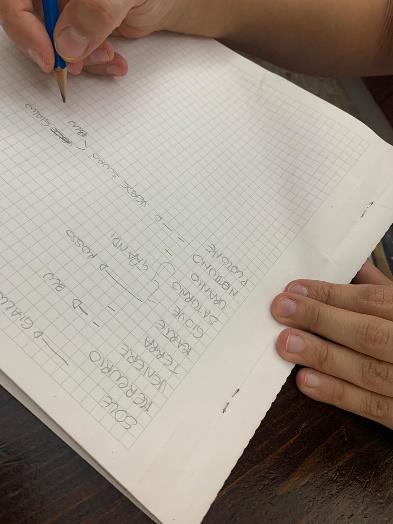 SOLE → GIALLO
MERCURIO -
VENERE -
TERRA → BLU
MARTE → ROSSO
GIOVE } GRANDI
SATURNO
URANNIO -
NETTUNO -
PLUTONE → VERDE SCURO ( GIALLO
BLU